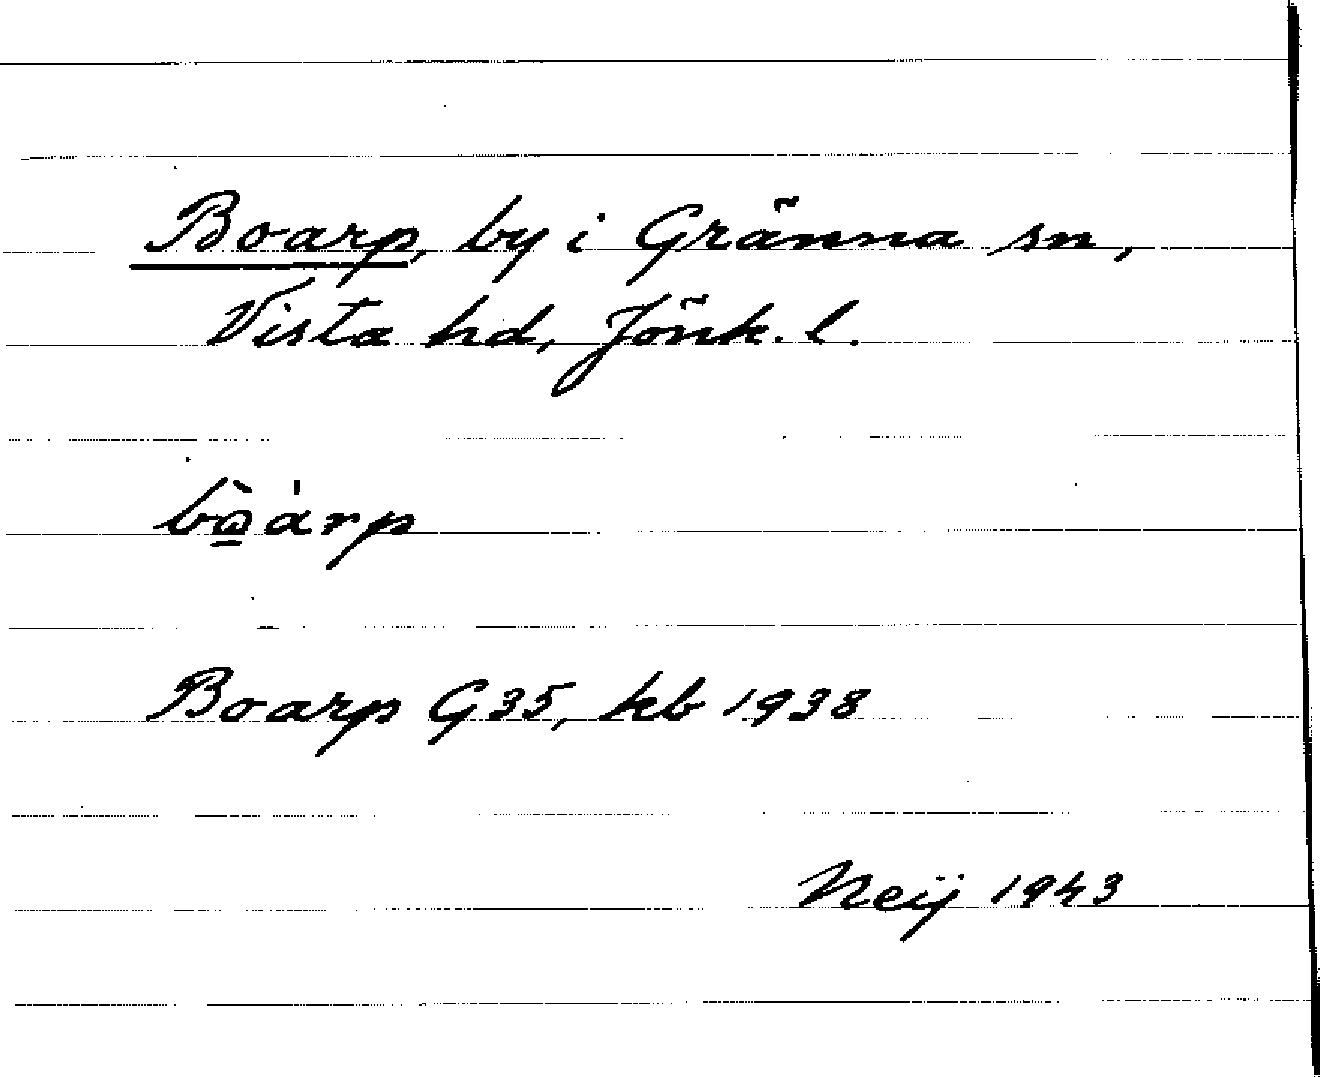 Boarp, by i Gränna sn,
Vista hd, Jönk. l.
bò̲àrp
Boarp G35, kb 1938
Neij 1943